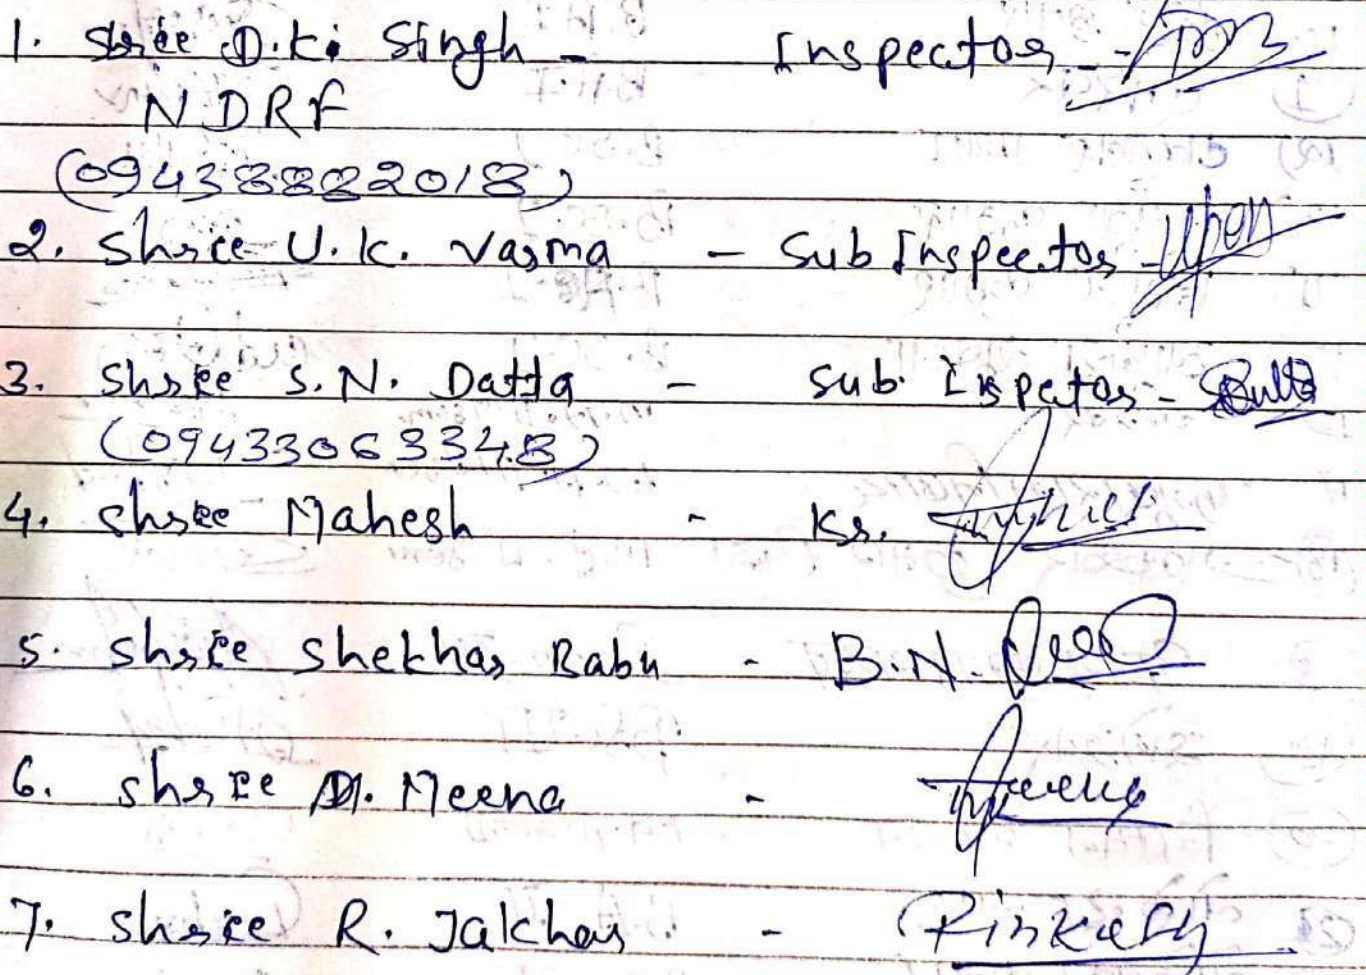 1. Shree D.K. Singh - Inspector -
NDRF
(09438882018)
2. Shree U.K. Varma - Sub Inspector - Upen
3. Shree S.N. Datta - Sub. Inspetor - Dutta
(09433063348)
4. Shree Mahesh - Kr.
5. Shree Shekhar Babu - B.N.
6. Shree M. Meena - Meena
7. Shree R. Jakhar -